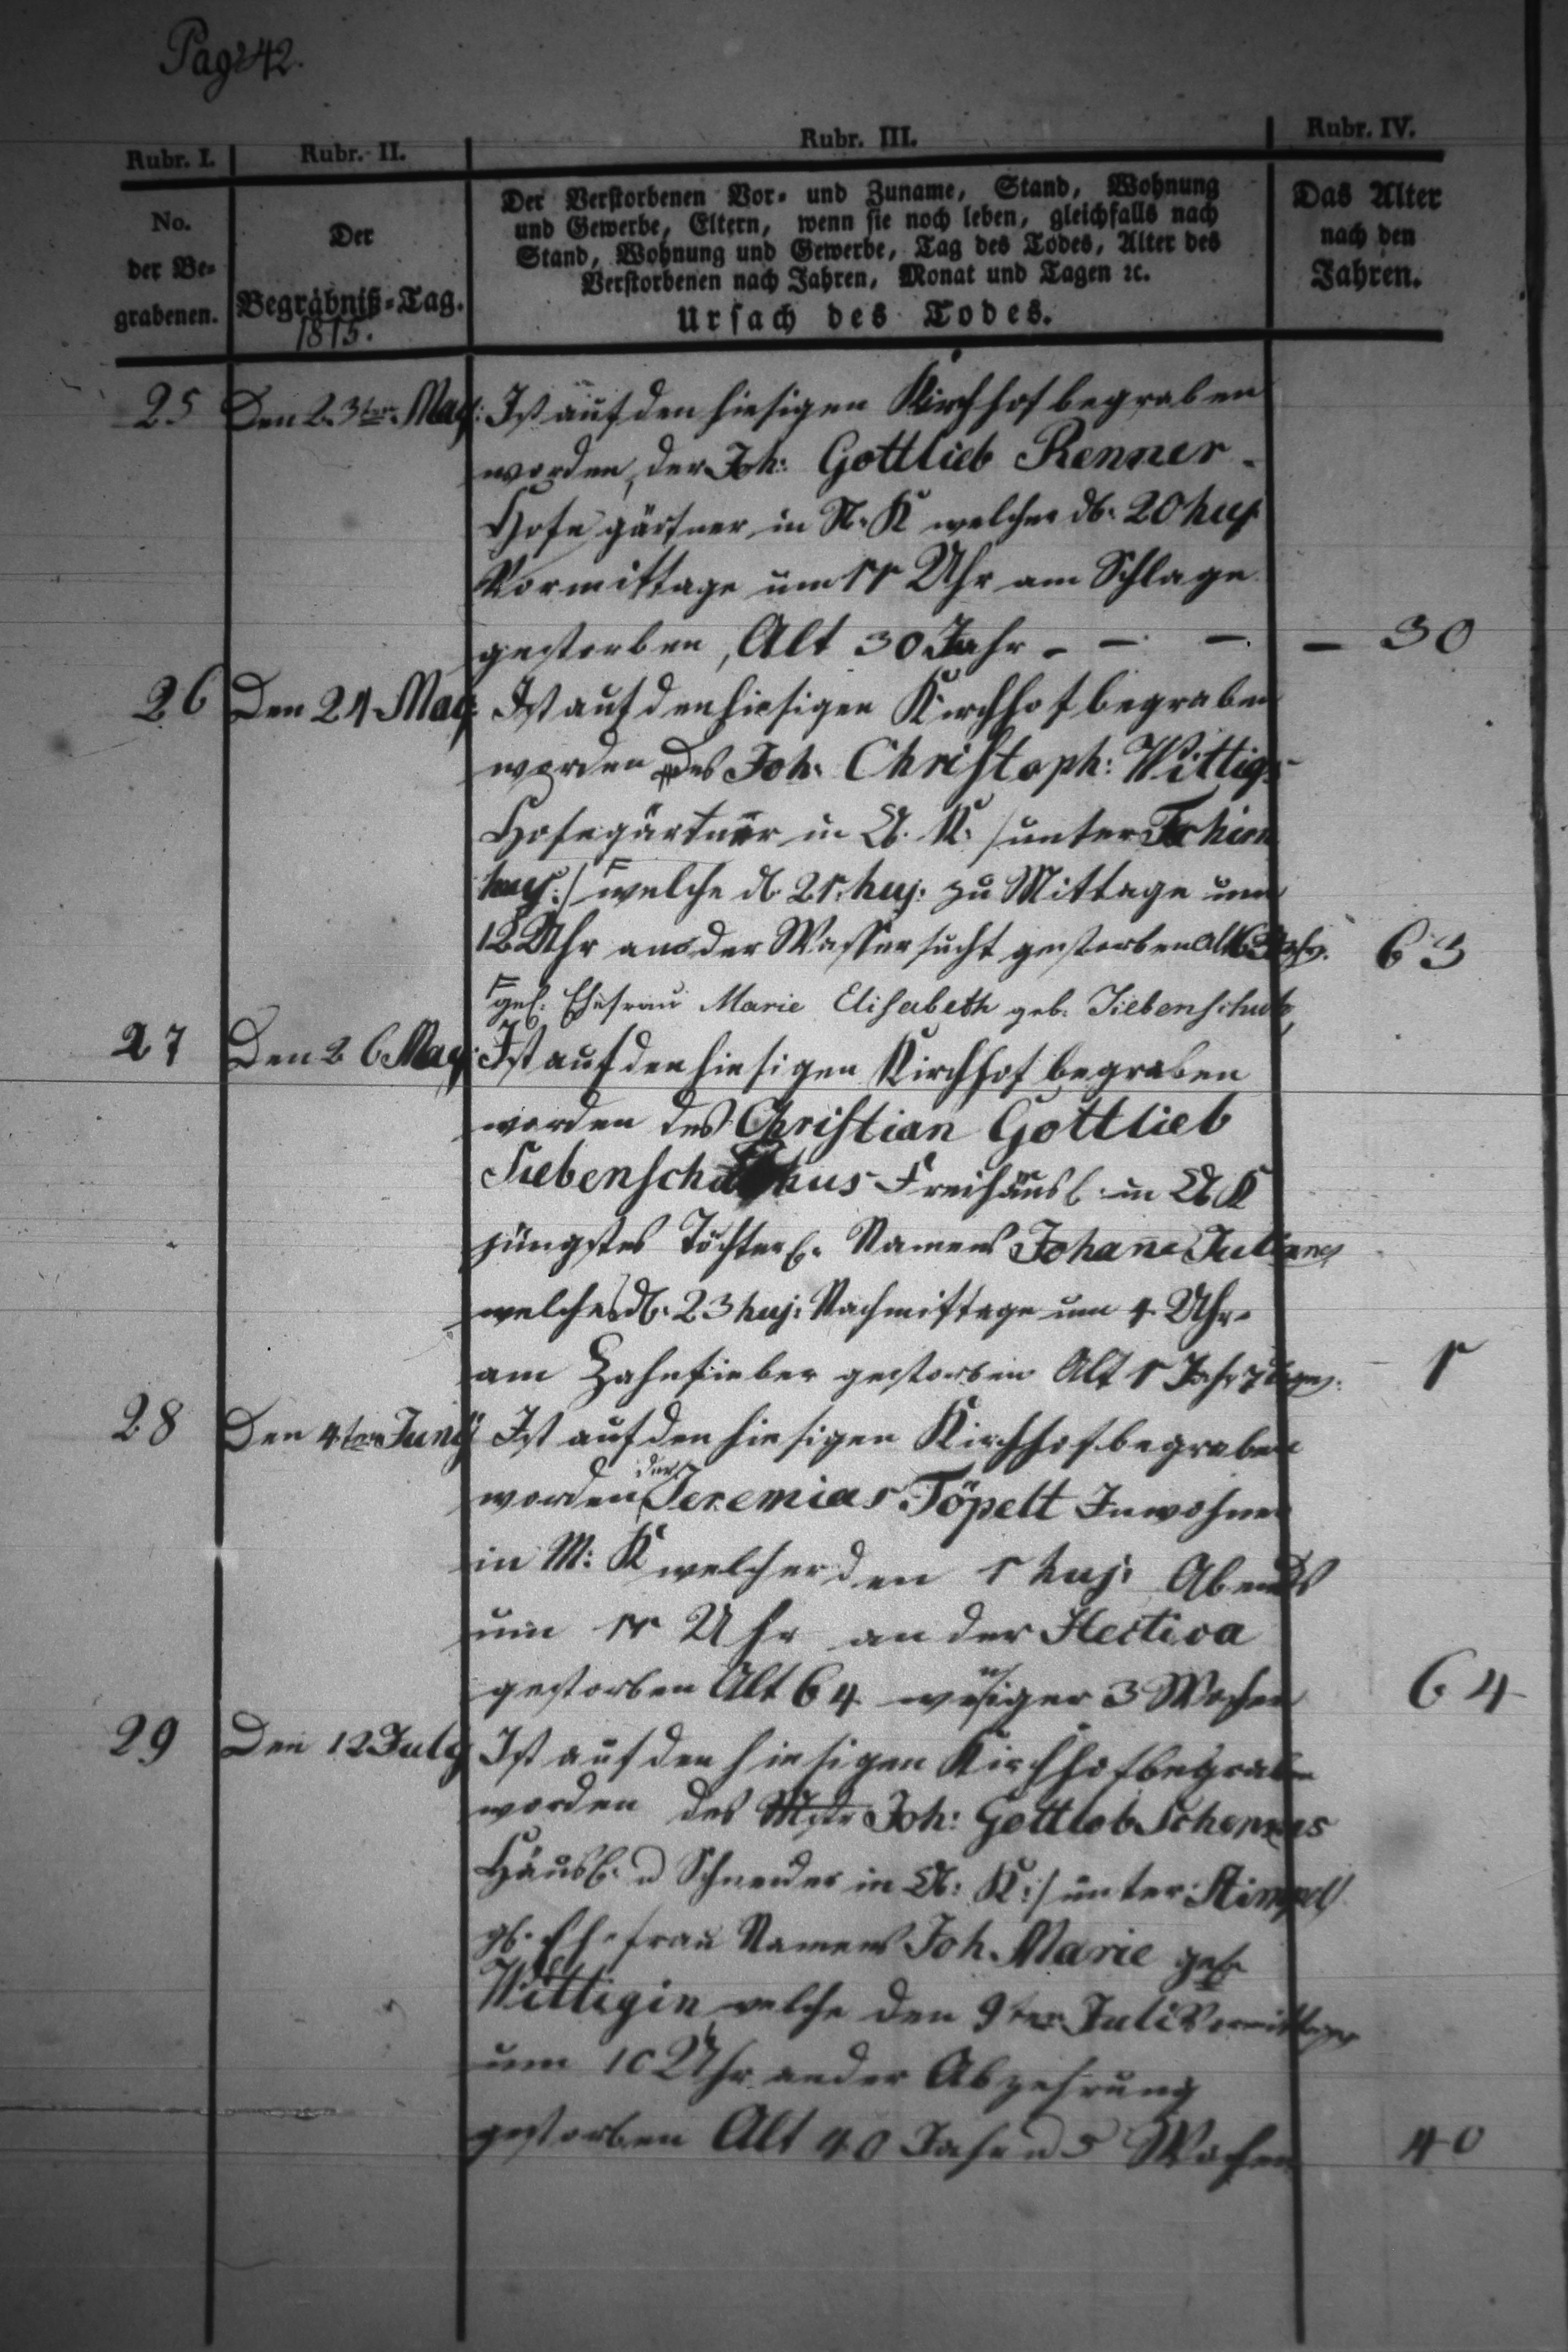 Pag. 42.
Rubr. I. Rubr. II. Rubr. III. Rubr. IV.
No. der Be-grabenen.
Der Begräbniß-Tag.
1815.
Der Verstorbenen Vor- und Zuname, Stand, Wohnung
und Gewerbe, Eltern, wenn sie noch leben, gleichfalls nach
Stand, Wohnung und Gewerbe, Tag des Todes, Alter des
Verstorbenen nach Jahren, Monat und Tagen ꝛc.
Ursach des Todes.
Das Alter
nach den
Jahren.
25 Den 23ten May: Ist auf den hiesigen Kirchhof begraben
worden, der Joh: Gottlieb Renner
Hofegärtner in N. K welcher d. 20 huj
Vormittage um 11 Uhr am Schlage
gestorben, Alt 30 Jahr - - - - 30
26 Den 24 May: Ist auf den hiesigen Kirchhof begraben
worden des Joh. Christoph: Wittigs
Hofegärtner in K: /unter
welche d. 21. huj: zu Mittage um
12 Uhr an der Wassersucht gestorben Alt 63 Jahr. 63
gel: Ehefrau Marie Elisabeth geb. Siebenschuh,
27 Den 26 May: Ist auf den hiesigen Kirchhof begraben
worden des Christian Gottlieb
Freihäusl: in K
jüngstes Töchterl. Namens Johane Juliane
welches d. 23 huj: Nachmittage um 4 Uhr
am Zahnfieber gestorben Alt 1 Jahr 7 Tage: 1
28 Den 4ten Juny Ist auf den hiesigen Kirchhof begraben
worden der Jeremias Töpelt Inwohner
in M: K welcher den 1 huj: Abends
um 11 Uhr an der Hectica
gestorben Alt 64 weniger 3 Wochen 64
29 Den 12 July Ist auf den hiesigen Kirchhof begraben
worden des Mstr Joh: Gottlob
Häusl. u Schneider in K:/ unter
gl. Ehefrau Namens Joh. Marie geb.
Wittigin welche den 9ten Juli Vormittage
um 10 Uhr an der Abzehrung
gestorben Alt 40 Jahr u 5 Wochen 40